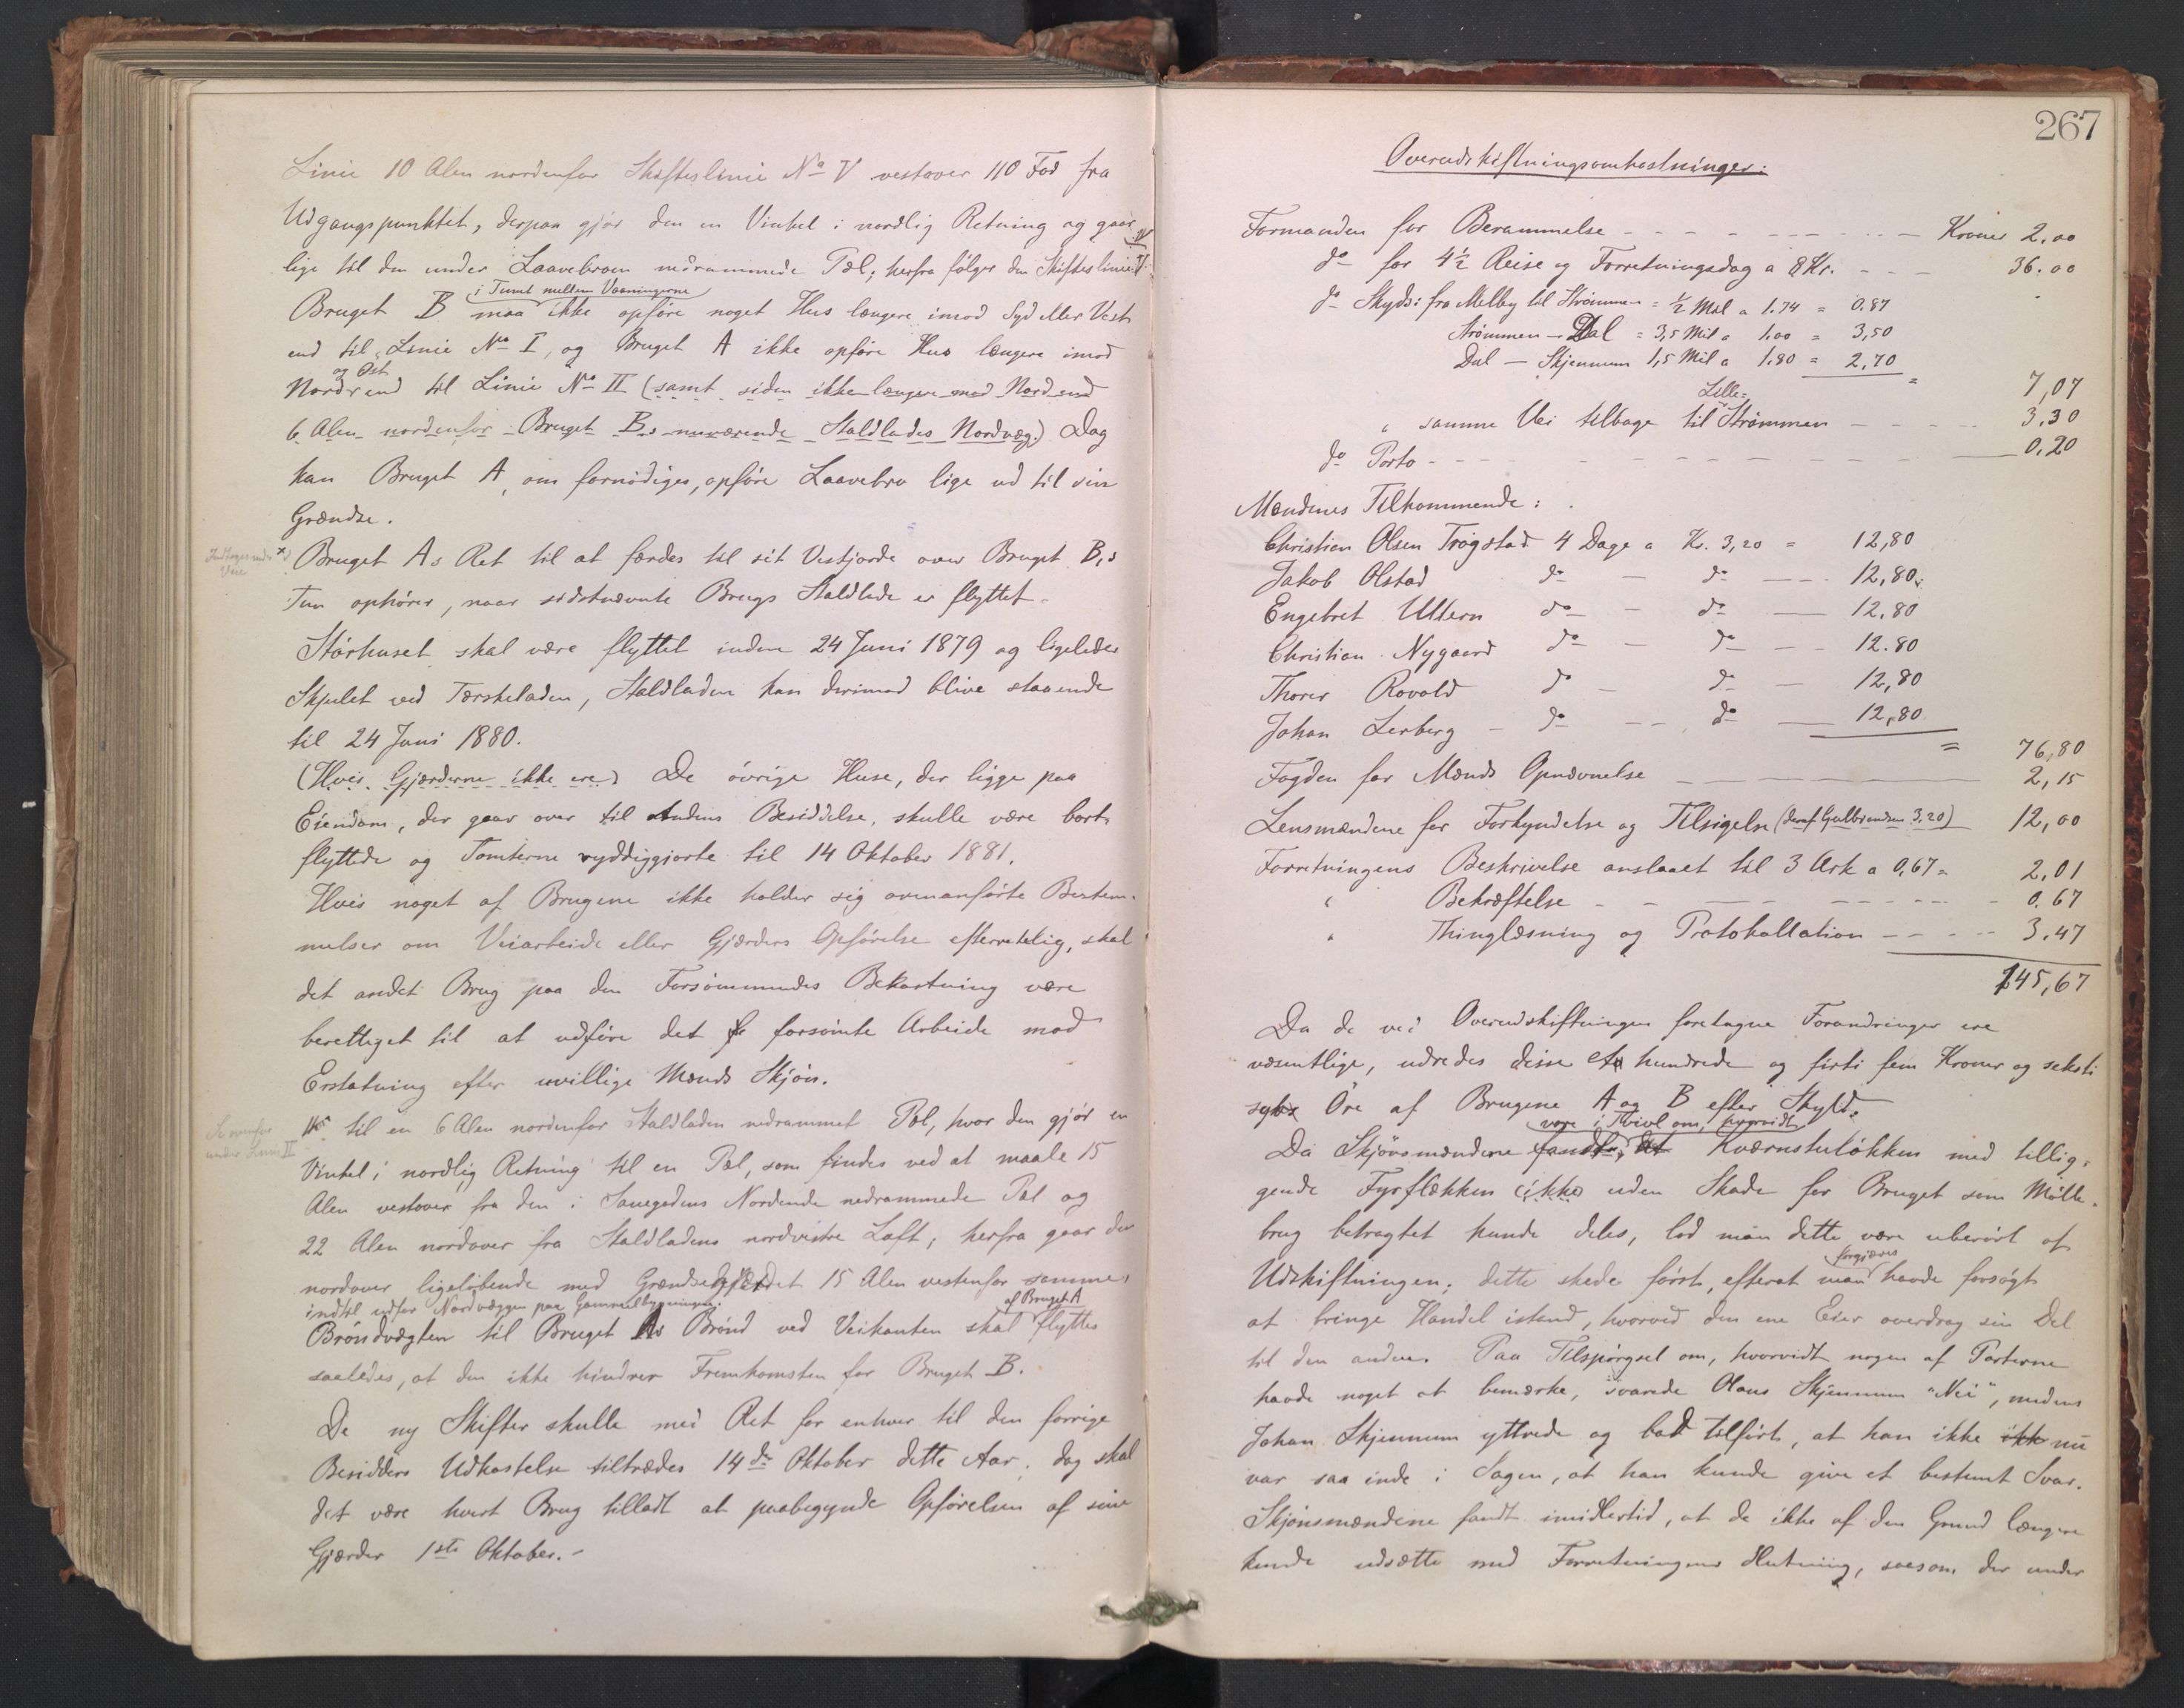 Linie 10 Alen nordenfor Skifteslinie No V vestover 110 Fod fra
Udgangspunktet, derpaa gjør den en Vinkel i nordlig Retning og gaar
lige til den under Laavebroen nedrammede Pæl; herfra følger den Skifteslinie IV
i Tunet mellem Vaaningerne
Bruget B maa ikke opføre noget Hus længere imod Syd eller Vest
end til Linie No I, og Bruget A ikke opføre Hus længere imod
og Øst
Nord end til Linie No II (samt siden ikke længere mod Nord end
6 Alen nordenfor Bruget B.s nuværende Staldlades Nordvæg.) Dog
kan Bruget A, om fornødiges, opføre Laavebro lige ud til sin
Grændse.
Indtages under Veie
x) Bruget As Ret til at færdes til sit Vestjorde over Bruget B.s
Tun ophører, naar sidstnævnte Brugs Staldlade er flyttet.
Størhuset skal være flyttet inden 24 Juni 1879 og ligeledes
Skjulet ved Tærskeladen, Staldladen kan derimod blive staaende
til 24 Juni 1880.
(Hvis Gjærderne ikke ere) De øvrige Huse, der ligge paa
Eiendom, der gaar over til Andens Besiddelse, skulle være bort-
flyttede og Tomterne ryddiggjorte til 14 Oktober 1881.
Hvis noget af Brugene ikke holder sig ovenanførte Bestem-
melser om Veiarbeide eller Gjærders Opførelse efterretelig, skal
det andet Brug paa den Forsømmendes Bekostning være
berettiget til at udføre det fo forsømte Arbeide mod
Erstatning efter uvillige Mænds Skjøn.
Se ovenfor under Linie II
til en 6 Alen nordenfor Staldladen nedrammet Pæl, hvor den gjør en
Vinkel i nordlig Retning til en Pæl, som findes ved at maale 15
Alen vestover fra den i Tunegodens Nordende nedrammede Pæl og
22 Alen nordover fra Staldladens nordvestre Laft; herfra gaar den
nordover ligeløbende med Grændsegjærdet 15 Alen vestenfor samme,
indtil udfor Nordvæggen paa Gammelbygningen.
af Bruget A
Brøndvægten til Bruget As Brønd ved Veikanten skal flyttes
saaledes, at den ikke hindrer Fremkomsten for Bruget B.
De ny Skifter skulle med Ret for enhver til den forrige
Besidders Udkastelse tiltrædes 14de Oktober dette Aar, dog skal
det være hvert Brug tilladt at paabegynde Opførelsen af sine
Gjærder 1ste Oktober.-
267
Overudskiftningsomkostninger:
Formanden for Berammelse - - - Kroner 2.00
do for 4½ Reise og Forretningsdag a 8 Kr. - - - 36.00
do Skyds: fra Melby til Strømmen = ½ Mil a 1.74 = 0.87
Strømmen - Dal = 3,5 Mil a 1.00 = 3,50
Dal - Skjennum 1,5 Mil a 1.80 = 2,70
= 7,07
Lille-
" samme Vei tilbage til Strømmen - - - 3.30
do Porto - - - 0.20
Mændenes Tilkommende:
Christian Olsen Trøgstad 4 Dage a Kr. 3,20 = 12,80
Jakob Olstad do - do - 12,80
Engebret Ullern do - do - 12,80
Christian Nygaard do - do - 12.80
Thorer Rovold do - do - 12,80
Johan Lerberg - do - do - 12,80
= 76,80
Fogden for Mænds Opnævnelse - 2,15
Lensmændene for Forkyndelse og Tilsigelse (deraf Gulbrandsen 3.20) 12,00
Forretningens Beskrivelse anslaaet til 3 Ark a 0,67 = 2.01
" Bekræftelse - - - 0.67
" Thinglæsning og Protokollation - - - 3.47
145,67
Da de ved Overudskiftningen foretagne Forandringer ere
væsentlige, udredes disse Et hundrede og firti fem Kroner og seksti
syv Øre af Brugene A og B efter Skyld.
vare i Tvivl om, hvorvidt
Da Skjønsmændene fandt, at Kværnstuløkken med tillig-
gende Fyrflækken (ikke) uden Skade for Bruget som Mølle-
brug betragtet kunde deles, lod man dette være uberørt af
forgjæves
Udskiftningen; dette skede først, efterat man havde forsøgt
at bringe Handel istand, hvorved den ene Eier overdrog sin Del
til den anden. Paa Tilspørgsel om, hvorvidt nogen af Parterne
havde noget at bemærke, svarede Olaus Skjennum "Nei", medens
Johan Skjennum yttrede og bad tilført, at han ikke ikk nu
var saa inde i Sagen, at han kunde give et bestemt Svar.
Skjønsmændene fandt imidlertid, at de ikke af den Grund længere
kunde udsætte med Forretningens Slutning, saasom der under